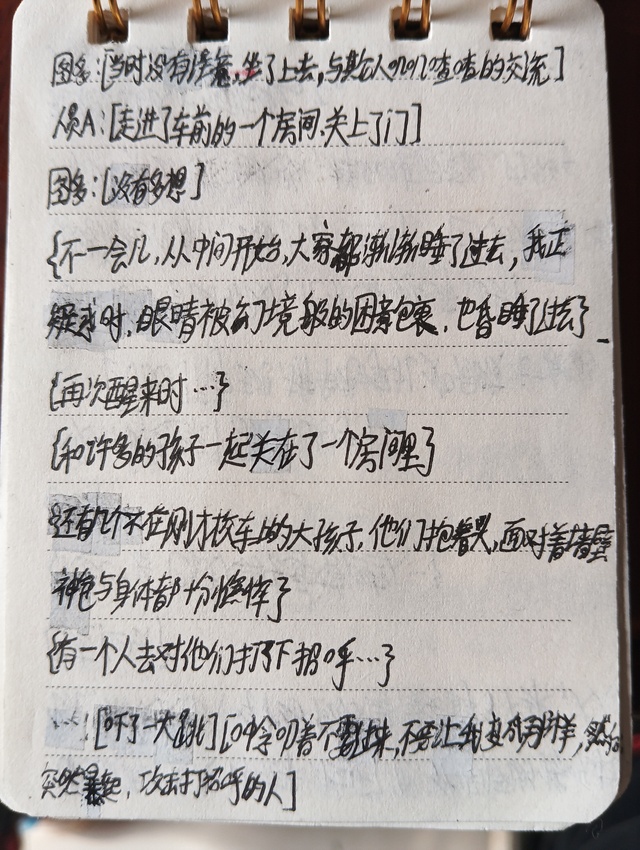 图多:[当时没有注意,坐了上去,与其人叽叽喳喳的交流]
人员A:[走进了车前的一个房间,关上了门]
图多:[没有多想]
{不一会儿,从中间开始,大家都渐渐睡了过去,我正
疑惑时,眼睛被幻境般的困意包裹,也昏睡了过去了
{再次醒来时…}
{和许多的孩子一起关在了一个房间里}
还有几个不在刚才校车上的大孩子,他们抱着哭,面对着墙壁
神色与身体都十分憔悴了
{有一个人去对他们打了下招呼…}
…:[吓了一大跳][口中念叨着不要过来,不要让我变成那样,然后
突然暴起,攻击打招呼的人]